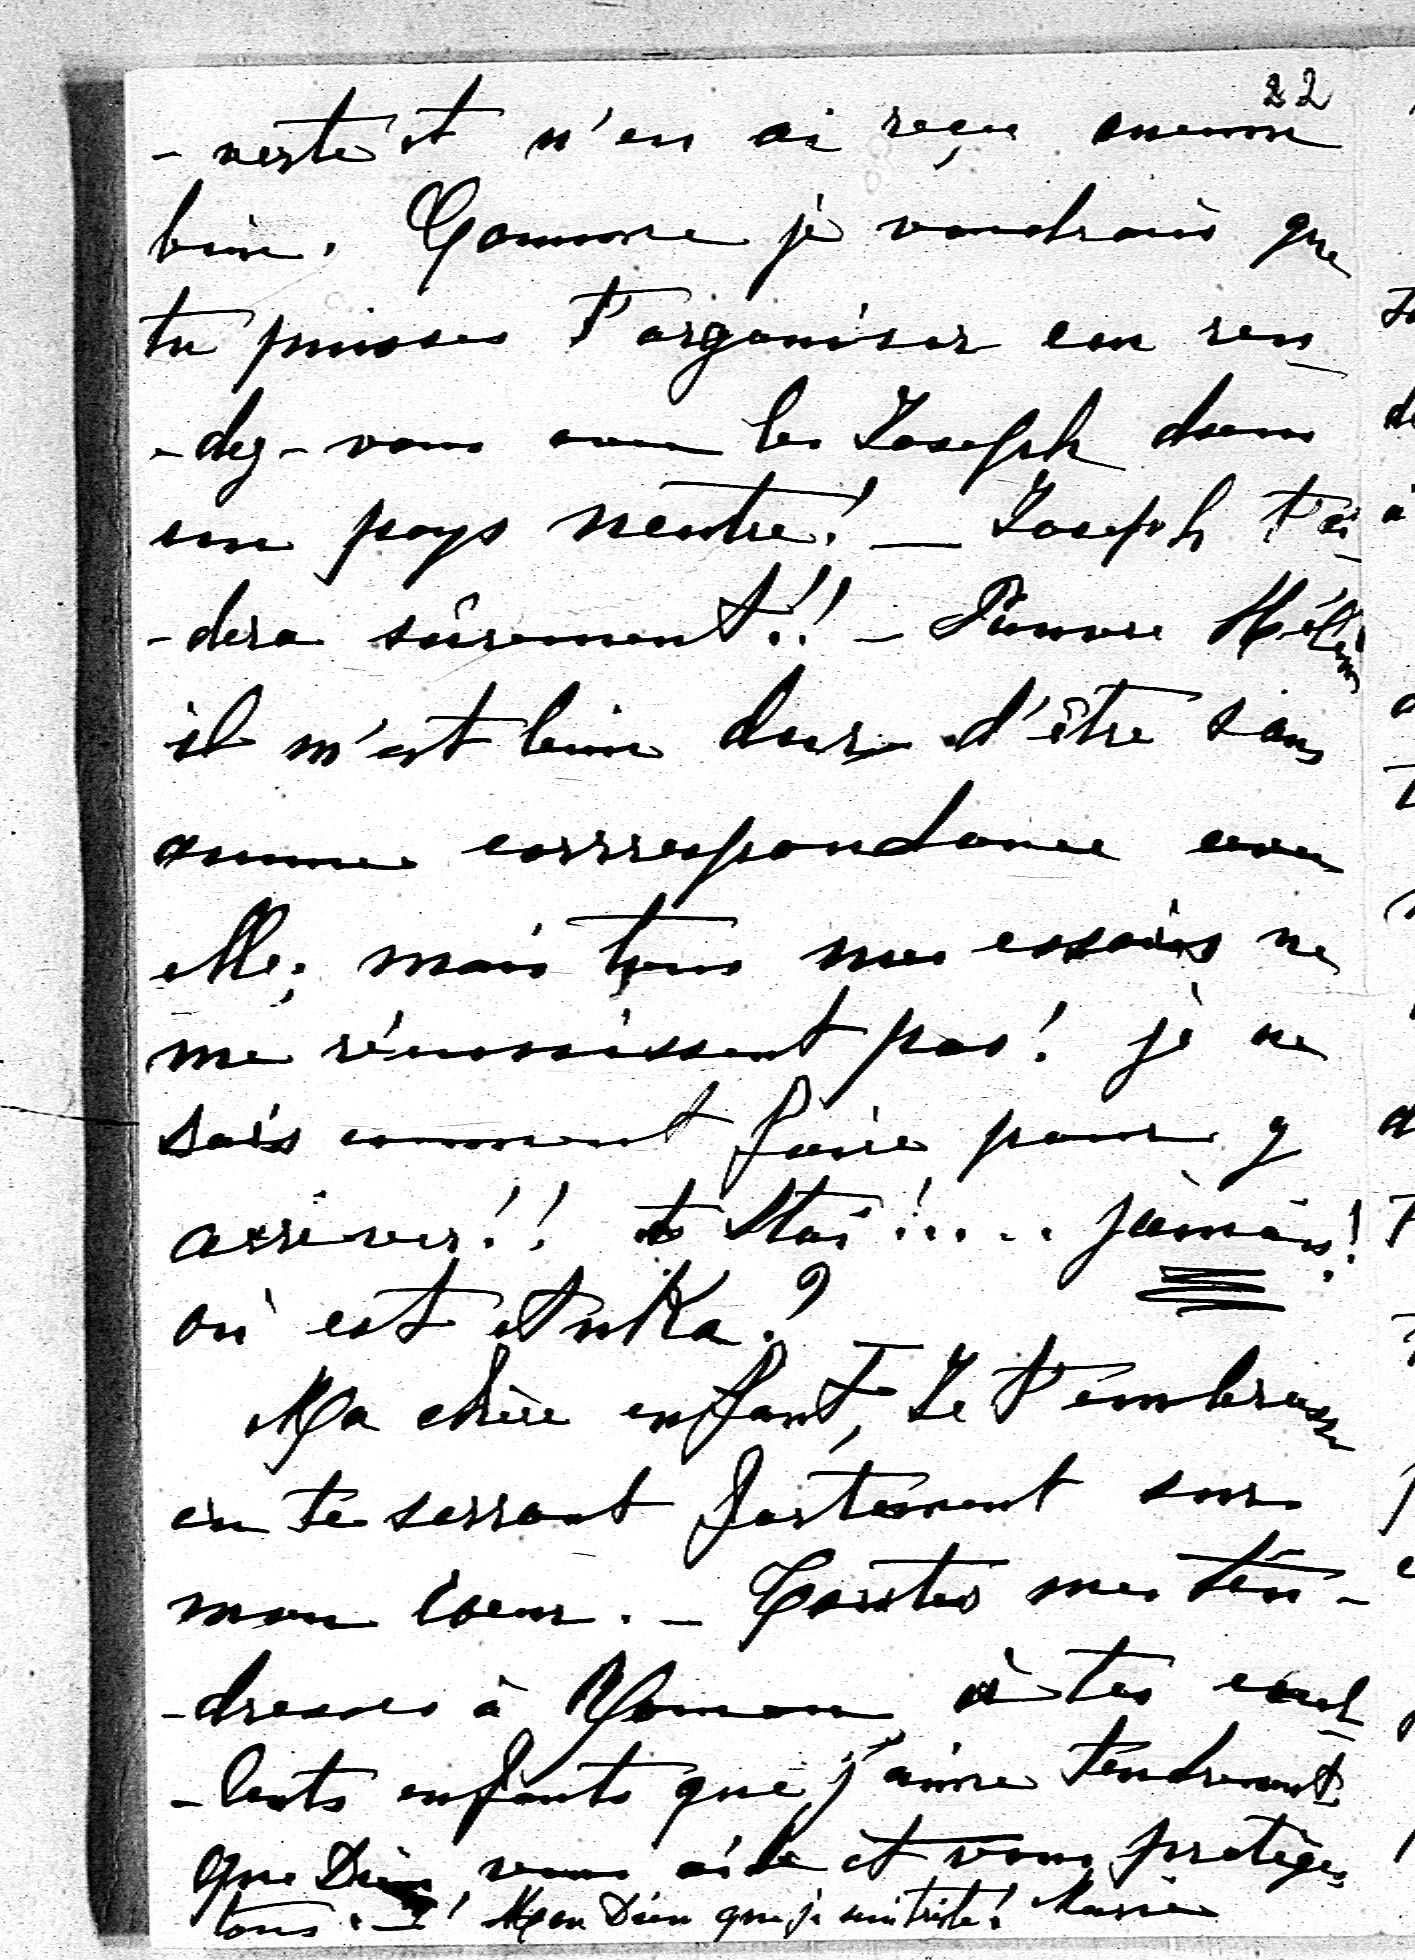 22
- neste et n'en ai reçu aucun
bien. Comme je voudrais que
tu puisses t'organiser un ren
- dez - vous avec les Joseph dans
un pays neutre! — Joseph t'ai
- dera sûrement!! — Pauvre Hélène
il m'est bien dur d'être sans
aucune correspondance avec
elle; mais tous mes essais ne
me réunissent pas! je ne
sais comment faire pour y
arriver!! et Itaï!.... jamais!
où est Anka?
Ma chère enfant, Je t'embrasse
en te serrant fortement sur
mon coeur. — Toutes mes ten -
- dresses à Maman, à tes excel
- lents enfants que j'aime tendrement.
Que Dieu vous aide et vous protège
tous. — ! Mon Dieu que je suis triste! Marie